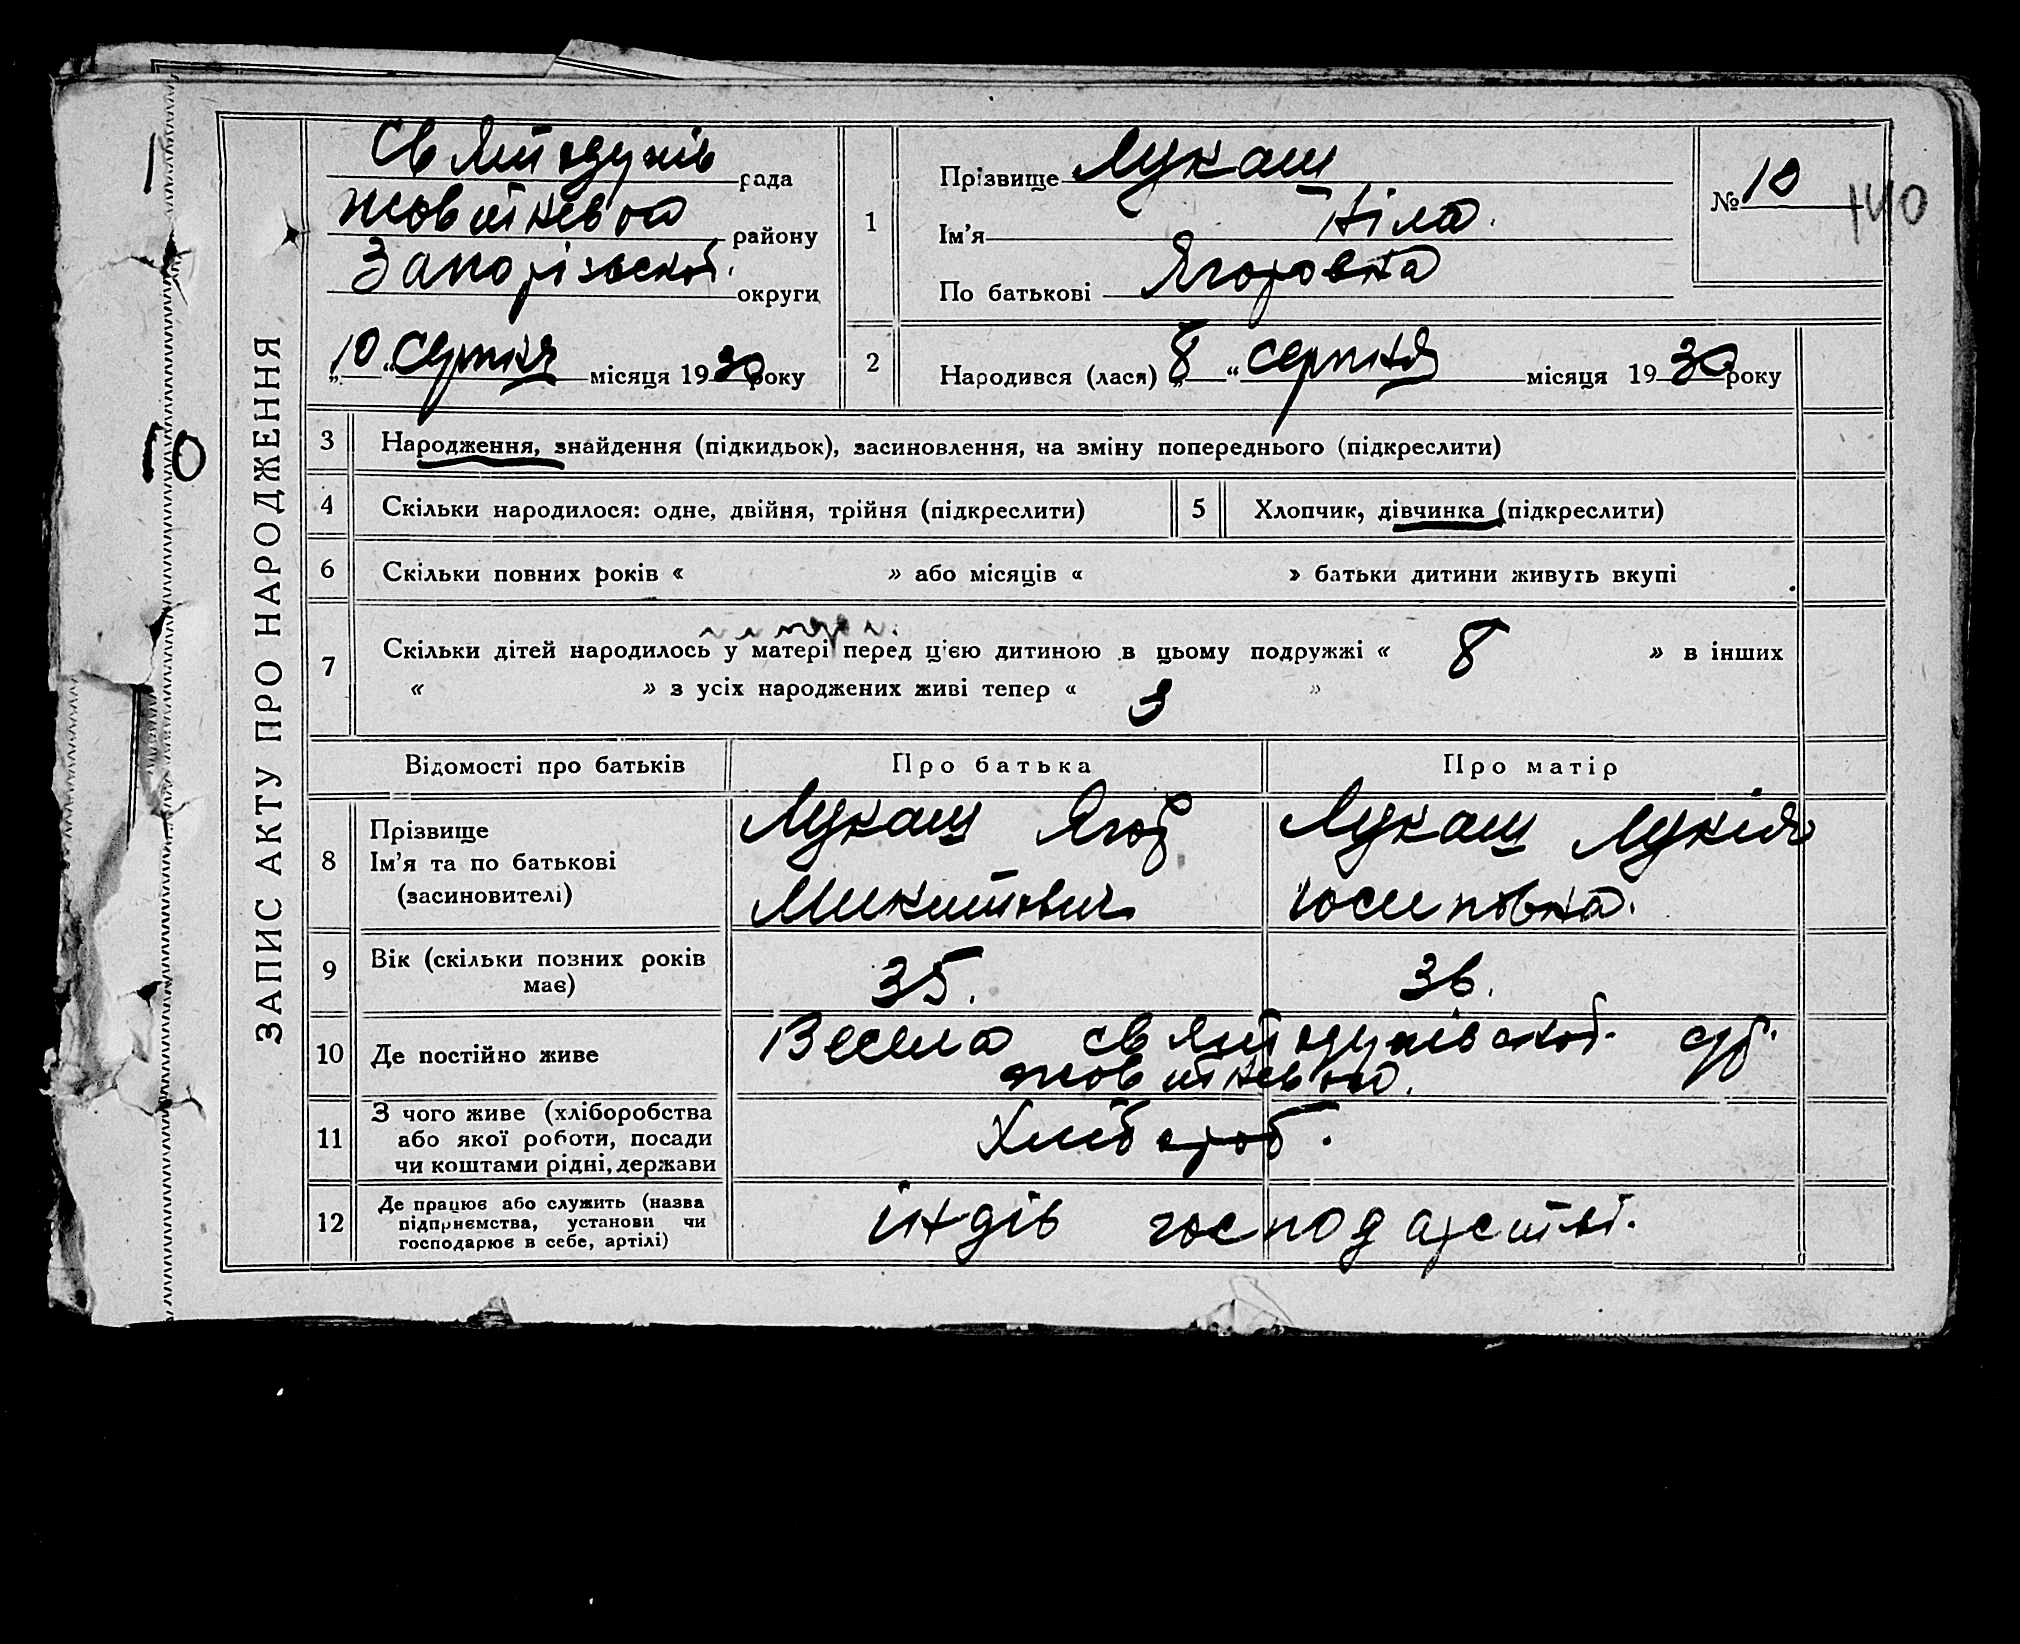 ЗАПИС АКТУ ПРО НАРОДЖЕННЯ
1
10
рада
Жовтневого району
Запорізської округи
„10“ Серпня місяця 1930 року
1
Прізвище Лукаш
Ім'я Ніла.
По батькові Ягоровна
№ 10
140
2
Народився (лася) „8“ серпня місяця 1930 року
3 Народження, знайдення (підкидьок), засиновлення, на зміну попереднього (підкреслити)
4 Скільки народилося: одне, двійня, трійня (підкреслити)
5 Хлопчик, дівчинка (підкреслити)
6 Скільки повних років « » або місяців « » батьки дитини живуть вкупі
7 Скільки дітей народилось у матері перед цією дитиною в цьому подружжі « 8 » в інших
« » з усіх народжених живі тепер « 3 »
Відомості про батьків
Про батька
Про матір
8
Прізвище
Ім'я та по батькові
(засиновителі)
Лукаш Ягор
Микитович
Лукаш Лукія
Юсиповна.
9
Вік (скільки повних років
має)
35.
36.
10 Де постійно живе
Весела
Жовтневого.
11
З чого живе (хліборобства
або якої роботи, посади
чи коштами рідні, держави
Хлібороб.
12
Де працює або служить (назва
підприємства, установи чи
господарює в себе, артілі)
індів господарстві.